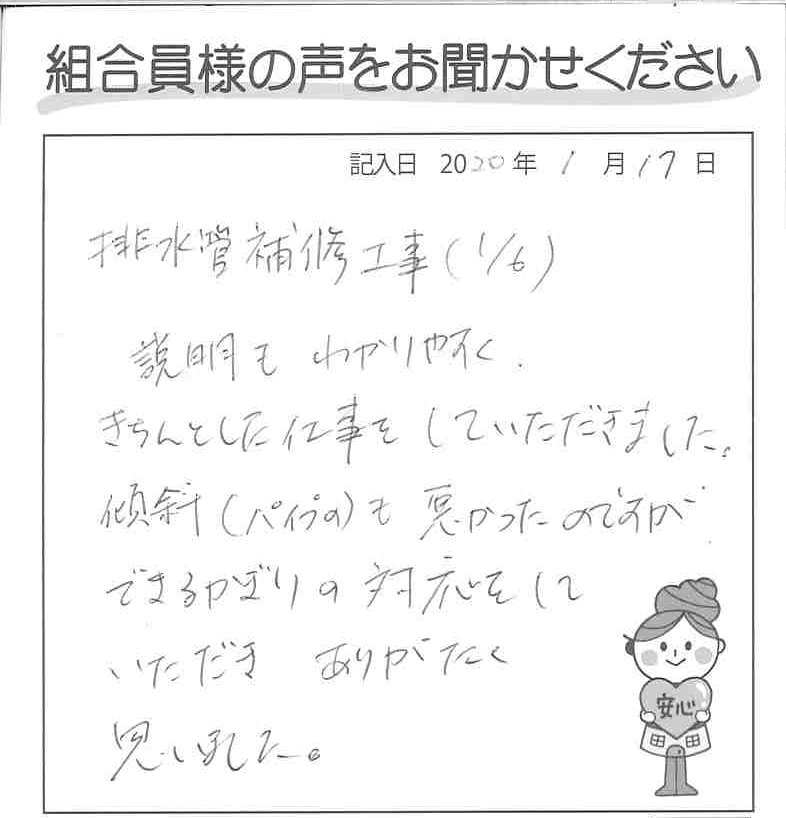 組合員様の声をお聞かせください
記入日 2020年 1月17日
排水管補修工事(1/6)
説明も わかりやすく、
きちんとした仕事をしていただきました。
傾斜(パイプの)も悪かったのですが
できるかぎりの対応をして
いただき ありがたく
思いました。
安心